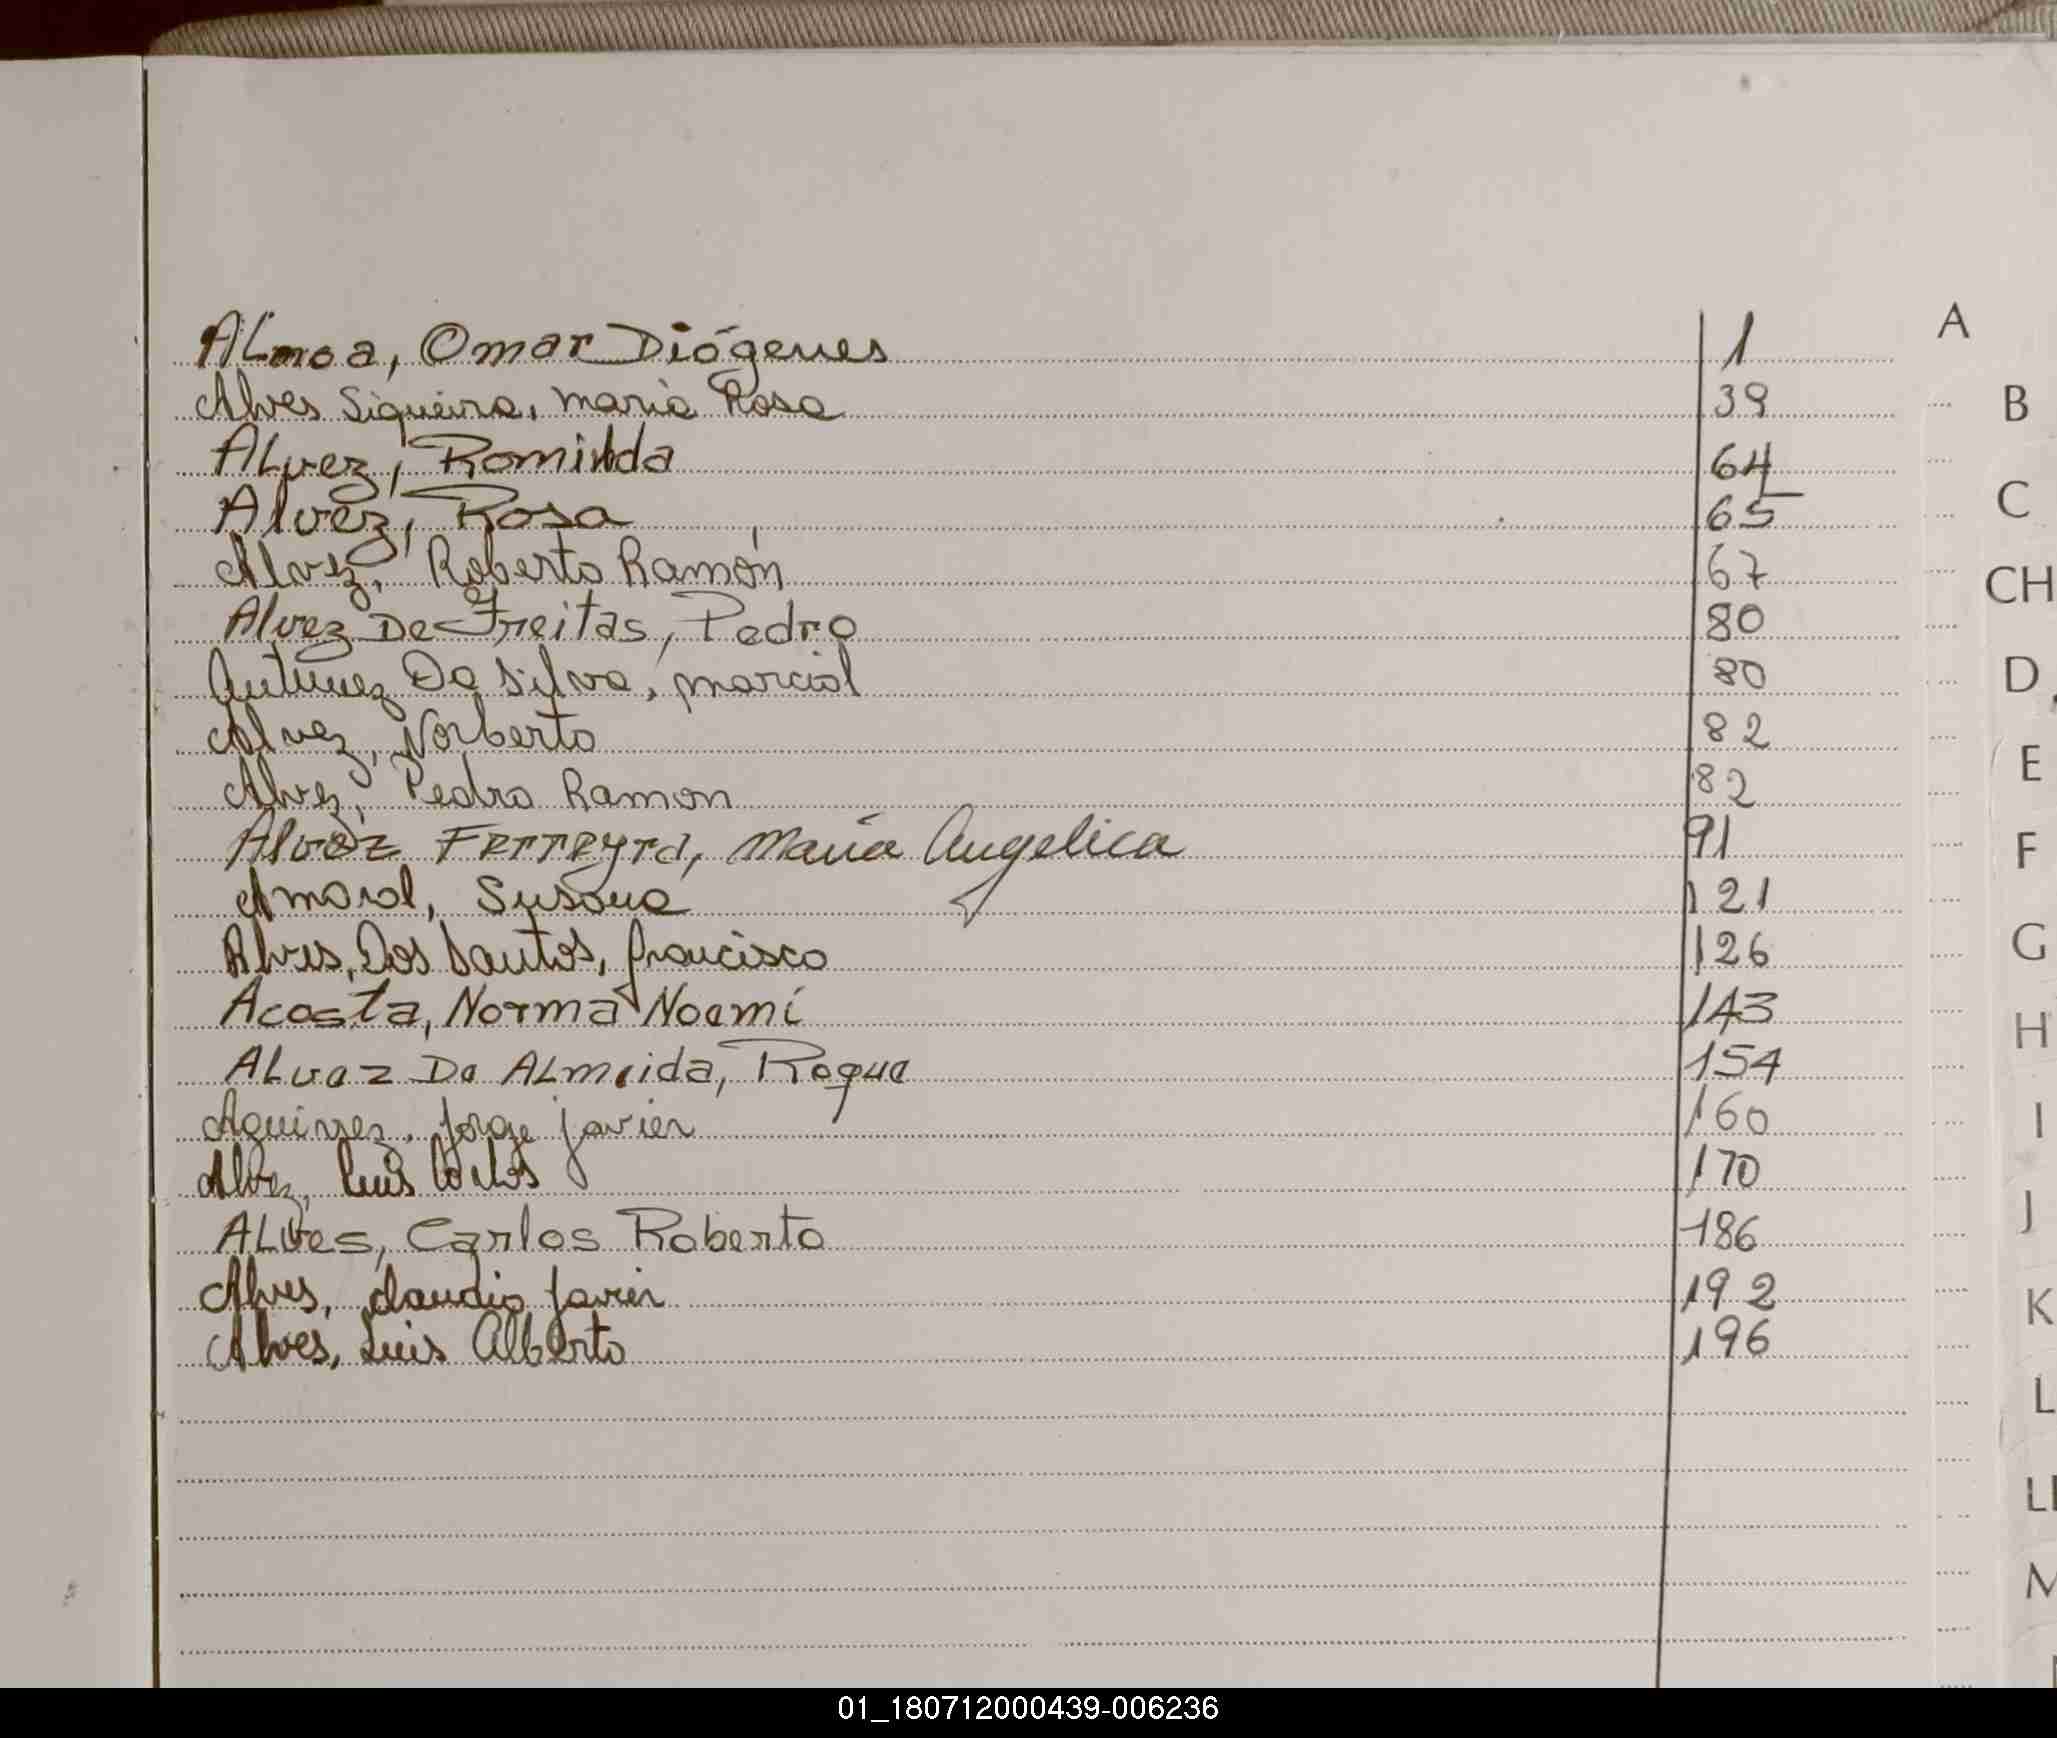 ALmoa, Omar Diógenes 1
Alves Siqueira, Maria Rosa 39
ALvez, Romilda 64
Alvez, Rosa 65
Alvez, Roberto Ramón 67
Alvez De Freitas, Pedro 80
Antunez Da Silva, Marcial 80
Alvez, Norberto 82
Alvez, Pedro Ramon 82
Alvez Ferreyra, Maria Angelica 91
Amaral, Susana 121
Alves, Dos Santos, Francisco 126
Acosta, Norma Noemí 143
ALvez De ALmeida, Roque 154
Aguirrez, Jorge Javier 160
Alvez, Luis Carlos 170
ALves, Carlos Roberto 186
Alves, Claudio Javier 192
Alves, Luis Alberto 196
A
B
C
CH
D
E
F
G
H
I
J
K
L
LL
M
01_180712000439-006236